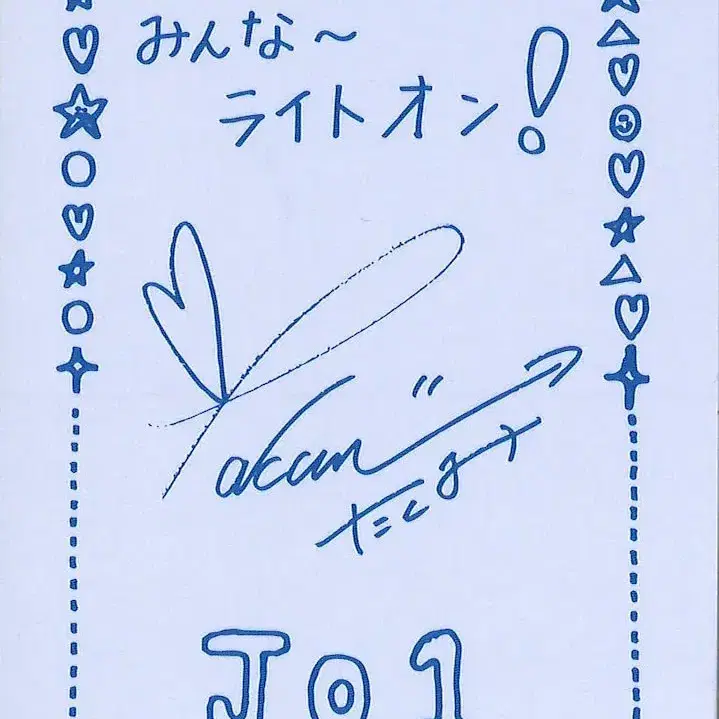 みんな〜
ライトオン!
Takumi
たくみ
JO1